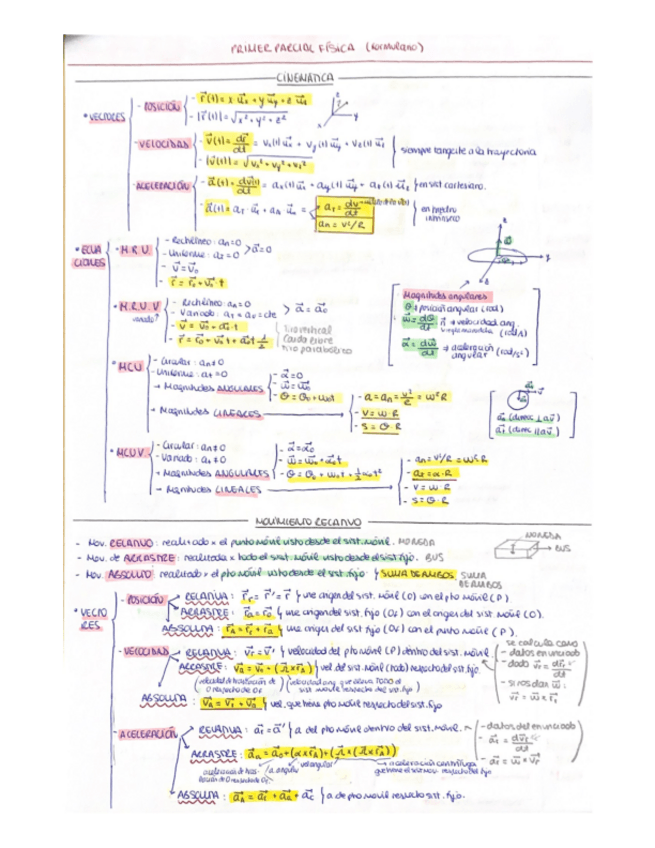 PRIMER PARCIAL FÍSICA (formulario)
CINEMÁTICA
• VECTORES
- POSICIÓN
- r⃗(t) = x u⃗x + y u⃗y + z u⃗z
- |r⃗(t)| = √x² + y² + z²
- VELOCIDAD
- v⃗(t) = dr⃗/dt = vx(t) u⃗x + vy(t) u⃗y + vz(t) u⃗z
- |v⃗(t)| = √vx² + vy² + vz²
siempre tangente a la trayectoria
- ACELERACIÓN
- a⃗(t) = dv⃗(t)/dt = ax(t) u⃗x + ay(t) u⃗y + az(t) u⃗z } en sist cartesiano.
- a⃗(t) = aT · u⃗T + an u⃗n = aT = dv/dt
an = v²/R
en
• ECUACIONES
• M.R.U.
- Rectilíneo: an = 0
- Uniforme: aT = 0 > a⃗ = 0
- v⃗ = v⃗0
- r⃗ = r⃗0 + v⃗0 · t
• M.R.U.V
- Rectilíneo: an = 0
- Variado: aT = a0 = cte > a⃗ = a⃗0
- v⃗ = v⃗0 + a⃗0 · t
Tiro vertical
Caída libre
Tiro parabólico
Magnitudes angulares
θ → posición angular (rad)
→ velocidad ang.
→ aceleración angular (rad/s²)
• MCU
- Circular: an ≠ 0
- Uniforme: aT = 0
→ Magnitudes ANGULARES
- α⃗ = 0
- ω⃗ = ω⃗0
- θ = θ0 + ω0t
→ Magnitudes LINEALES
- a = an = v²/R = ω²R
- v = ω · R
- S = θ · R
an (direc ⊥ a v⃗)
aT (direc ∥ a v⃗)
• MCUV
- Circular: an ≠ 0
- Variado: aT ≠ 0
→ Magnitudes ANGULARES
- α⃗ = α⃗0
- ω⃗ = ω⃗0 + α⃗0t
- θ = θ0 + ω0t + ½αt²
→ Magnitudes LINEALES
- an = v²/R = ω²R
- aT = α · R
- v = ω · R
- S = θ · R
MOVIMIENTO RELATIVO
- Mov. RELATIVO: realizado x el punto móvil visto desde el sist. móvil. MONEDA
- Mov. de ARRASTRE: realizado x todo el sist. móvil visto desde el sist fijo. BUS
- Mov ABSOLUTO realizado x el pto móvil visto desde el sist. fijo. } SUMA DE AMBOS SUMA DE AMBOS
MONEDA
→ BUS
• VECTORES
- POSICIÓN
RELATIVA: r⃗r = r⃗' = r⃗ } une origen del sist. móvil (O) con el pto móvil (P).
ARRASTRE: r⃗a = r⃗0 } une origen del sist. fijo (Of) con el origen del sist. móvil (O).
ABSOLUTA: r⃗A = r⃗r + r⃗a } une origen del sist. fijo (Of) con el punto móvil (P).
- VELOCIDAD
RELATIVA: v⃗r = v⃗' } velocidad del pto móvil (P) dentro del sist. móvil.
ARRASTRE: } vel. del sist. móvil (todo) respecto del sist. fijo.
(velocidad de traslación de O respecto de Of) (velocidad ang. que lleva TODO el sist móvil respecto del sist. fijo)
ABSOLUTA: v⃗A = v⃗r + v⃗a } vel. que tiene pto móvil respecto del sist. fijo
se calcula como
- datos enunciado
- dado v⃗r = dr⃗/dt
- si nos dan ω⃗:
- ACELERACIÓN
RELATIVA: a⃗r = a⃗' } a del pto móvil dentro del sist. móvil.
- datos del enunciado
ARRASTRE:
a. angular
vel angular
→ aceleración centrífuga
ABSOLUTA: a⃗A = a⃗r + a⃗a + a⃗c } a de pto móvil respecto sist. fijo.